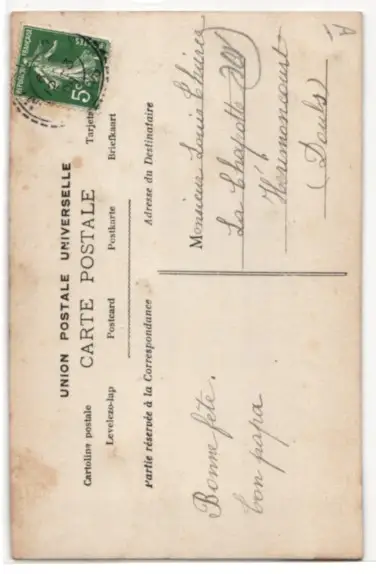 RÉPUBLIQUE FRANÇAISE
5c
UNION POSTALE UNIVERSELLE
CARTE POSTALE
Cartolina postale Postcard Postkarte Briefkaart Tarjeta
Levelezo-lap
Partie réservée à la Correspondance
Adresse du Destinataire
Bonne fête.
bon papa
Monsieur Louis
La Chapotte
Hérimoncourt
(Doubs)
A